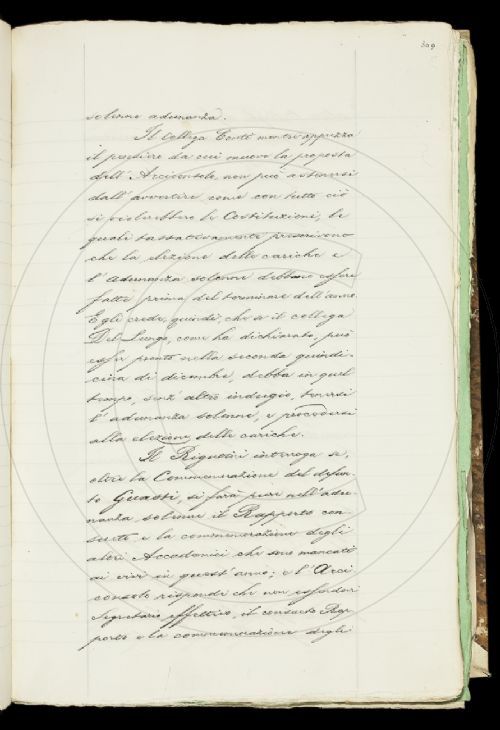 309
solenne adunanza.
Il collega Conti mentre apprezza
il pensiere da cui muove la proposta
dell'Arciconsolo, non può astenersi
dall'avvertire come con tutto ciò
si violerebbero le Costituzioni, le
quali tassativamente prescrivono
che la elezione delle cariche e
l'adunanza solenne debbano essere
fatte prima del terminare dell'anno.
Egli crede, quindi, che se il collega
Del Lungo, come ha dichiarato, può
esser pronto nella seconda quindi-
cina di dicembre, debba in quel
tempo, senz'altro indugio, tenersi
l'adunanza solenne, e procedersi
alla elezione delle cariche.
Il Rigutini interroga se,
oltre la Commemorazione del defun-
to Guasti, si farà pure nell'adu-
nanza solenne il Rapporto con-
sueto e la commemorazione degli
altri Accademici che sono mancati
ai vivi in quest'anno; e l'Arci
consolo risponde che non essendovi
Segretario effettivo, il consueto Rap-
porto e la commemorazione degli